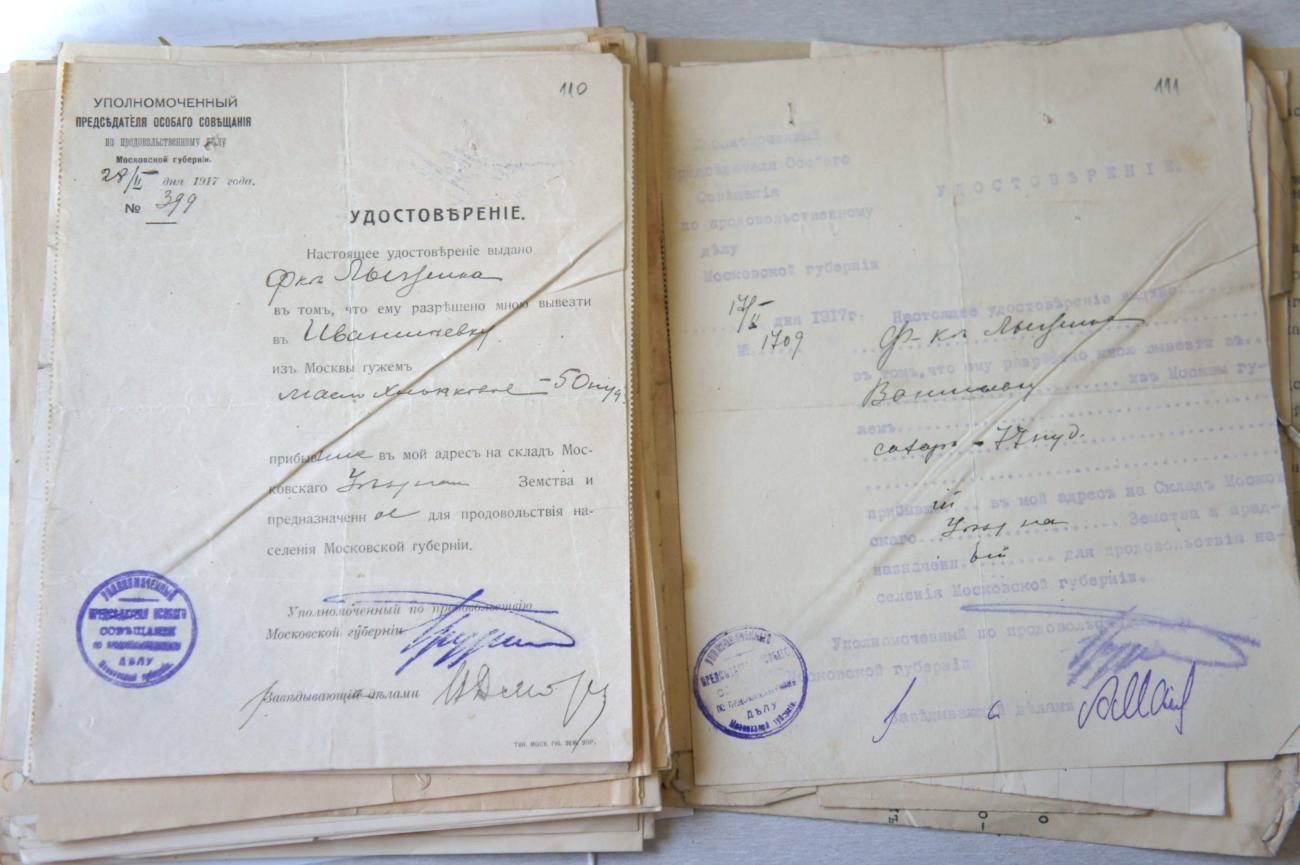 110
УПОЛНОМОЧЕННЫЙ
ПРЕДСѢДАТЕЛЯ ОСОБАГО СОВѢЩАНІЯ
по продовольственному дѣлу
Московской губерніи.
28/II дня 1917 года.
№ 399
УДОСТОВѢРЕНІЕ.
Настоящее удостовѣреніе выдано
въ томъ, что ему разрѣшено мною вывезти
въ
изъ Москвы гужемъ
масло 50 пуд.
прибывшее въ мой адресъ на складъ Мос-
ковскаго Земства и
предназначенное для продовольствія на-
селенія Московской губерніи.
Уполномоченный по продовольствію
Московской губерніи
Завѣдывающій дѣлами
ТИП. МОСК. ГУБ. ЗЕМ. УПР.
УПОЛНОМОЧЕННЫЙ
ПРЕДСѢДАТЕЛЯ ОСОБАГО
СОВѢЩАНІЯ
ПО ПРОДОВОЛЬСТВЕННОМУ
ДѢЛУ
Московской губерніи.
111
Уполномоченный
Предсѣдателя Особаго
Совѣщанія
по продовольственному
дѣлу
Московской губерніи
УДОСТОВѢРЕНІЕ.
17/II дня 1917г.
№ 1709
Настоящее удостовѣреніе выдано
въ томъ, что ему разрѣшено мною вывезти въ
изъ Москвы гу-
жемъ
сахаръ - 77 пуд.
прибывшій въ мой адресъ на Складъ Москов
скаго Земства и пред-
назначенный для продовольствія на-
селенія Московской губерніи.
Уполномоченный по продовольст
Московской губерніи
Завѣдывающій дѣлами
УПОЛНОМОЧЕННЫЙ
ПРЕДСѢДАТЕЛЯ ОСОБАГО
ДѢЛУ